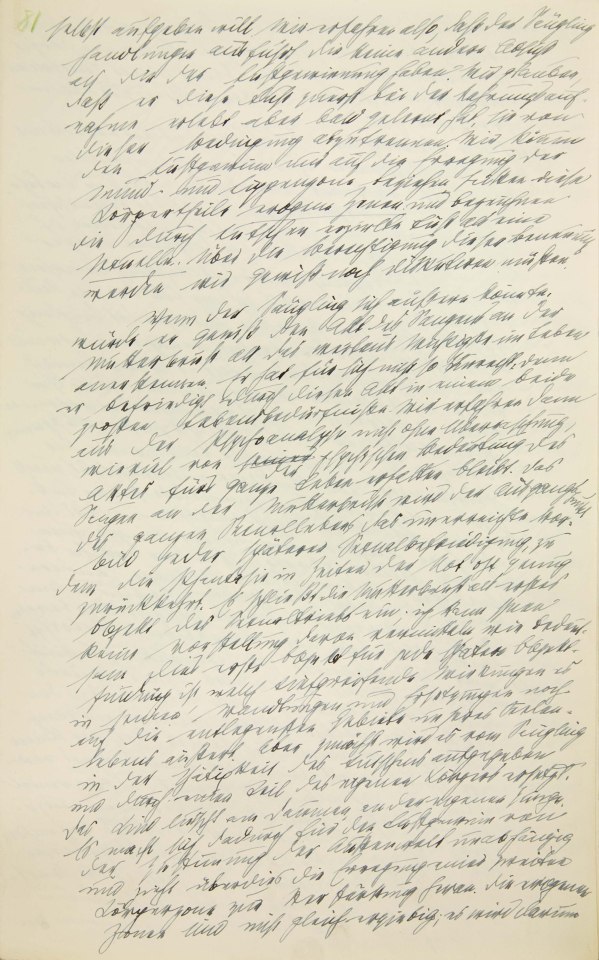 81
selbst aufgeben will. Wir erfahren also daß der Säugling
Handlungen ausführt die keine andere Absicht
als die der Lustgewinnung haben. Wir glauben,
daß er diese Lust zuerst bei der Nahrungsauf-
nahme erlebt aber bald gelernt hat, sie von
dieser Bedingung abzutrennen. Wir können
den Lustgewinn nur auf die Erregung der
Mund- und Lippenzone beziehen, heißen diese
Körpertheile erogene Zonen und bezeichnen
die durch Lutschen erzielte Lust als eine
sexuelle. Über die Berechtigung dieser Benennung
werden wir gewiß noch diskutiren müssen.
Wenn der Säugling sich äußern könnte,
würde er gewiß den Akt des Saugens an der
Mutterbrust als das weitaus Wichtigste im Leben
anerkennen. Er hat für sich nicht so Unrecht, denn
er befriedigt durch diesen Akt in einem beide
großen Lebensbedürfniße. Wir erfahren dann
aus der Psychoanalyse nicht ohne Überraschung,
wieviel von der psychischen Bedeutung des
Aktes fürs ganze Leben erhalten bleibt. Das
Saugen an der Mutterbrust wird der Ausgangspunkt
des ganzen Sexuallebens, das unerreichte Vor-
bild jeder späteren Sexualbefriedigung, zu
dem die Phantasie in Zeiten der Not oft genug
zurückkehrt. Es schließt die Mutterbrust als erstes
Objekt des Sexualtriebs ein; ich kann Ihnen
keine Vorstellung davon vermitteln wie bedeut-
sam dies erste Objekt für jede spätere Objekt-
findung ist, welch tiefgreifende Wirkungen es
in seinen Wandlungen und Ersetzungen noch
auf die entlegensten Gebiete unseres Seelen-
lebens äußert. Aber zunächst wird es vom Säugling
in der Thätigkeit des Lutschens aufgegeben
und durch einen Teil des eigenen Körpers ersetzt.
Das Kind lutscht am Daumen, an der eigenen Zunge.
Es macht sich dadurch für den Lustgewinn von
der Zustimmung der Außenwelt unabhängig
und zieht überdies die Erregung einer zweiten
Körperzone zur Verstärkung heran. Die erogenen
Zonen sind nicht gleich ergiebig; es wird darum